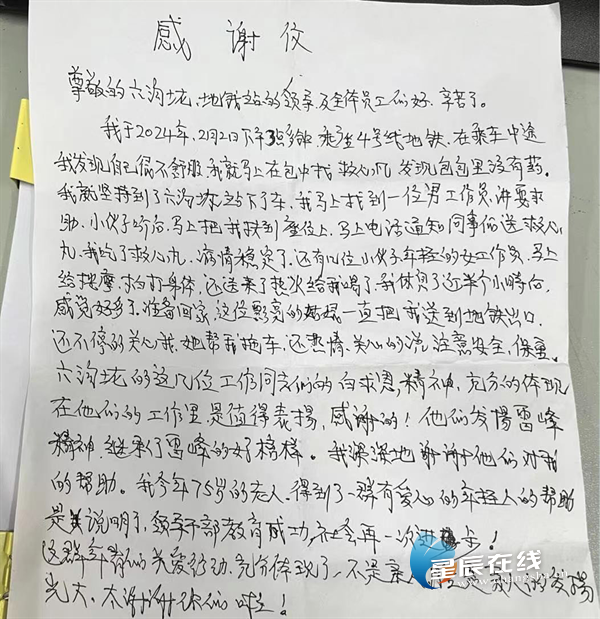 感谢佼
尊敬的六沟垅、地铁站的领导及全体员工们好、辛苦了。
我于2024年,2月2日下午3点多钟,乘座4号线地铁、在乘车中途
我发现自己很不舒服,我就马上在包中找救心丸,发现包包里没有药。
我就坚持到了六沟垅站下了车、我马上找到一位男工作员,讲要求
助、小伙子听后、马上把我扶到座位上、马上电话通知同事们送救心
丸、我吃了救心丸、病情稳定了、还有几位小伙子年轻的女工作员、马上
给按摩、拍打身体、还送来了热水给我喝了、我休息了近半个小时后,
感觉好多了、准备回家、这位漂亮的姑娘一直把我送到地铁出口、
还不停的关心我、她帮我拖车、还热情、关心的说、注意安全、保重、
六沟垅的这几位工作同志们的白求恩,精神,充分的体现
在他们的工作里,是值得表揚,感谢的!他们发揚雷峰
精神,继承了雷峰的好榜样。我深深地谢谢他们对我
的帮助。我今年75岁的老人、得到了一群有爱心的年轻人的帮助
是 说明了、领导干部教育成功,社会再一次进 步!
这群年青们的关爱行动,充分体现了、不是亲人 是 人的发揚
光大、太谢谢你们啦!
星辰在线